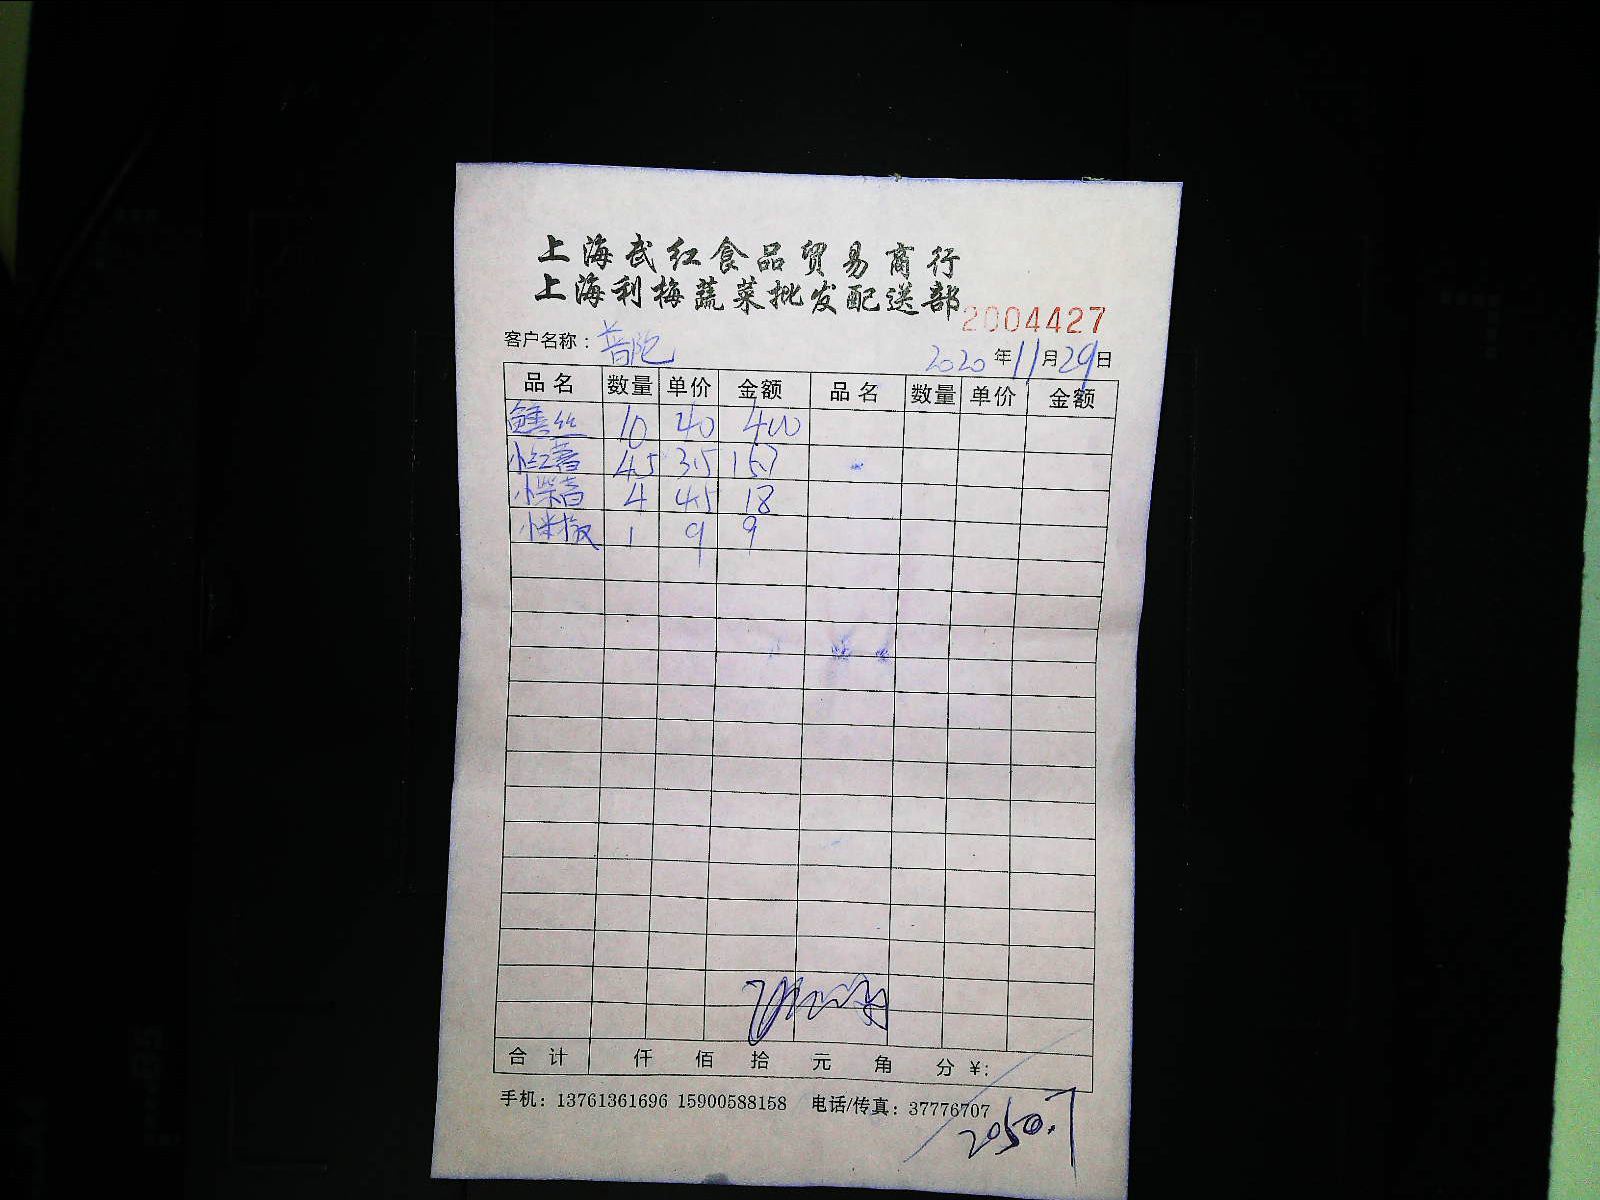 上海武红食品贸易商行
上海利梅蔬菜批发配送部
2004427
客户名称：普陀 2020年11月29日
品名 数量 单价 金额 品名 数量 单价 金额
鳝丝 10 40 400
小红薯 4.5 3.5 15.7
小紫薯 4 4.5 18
小米椒 1 9 9
合计 仟 佰 拾 元 角 分 ¥:
手机：13761361696 15900588158 电话/传真：37776707
2050.7